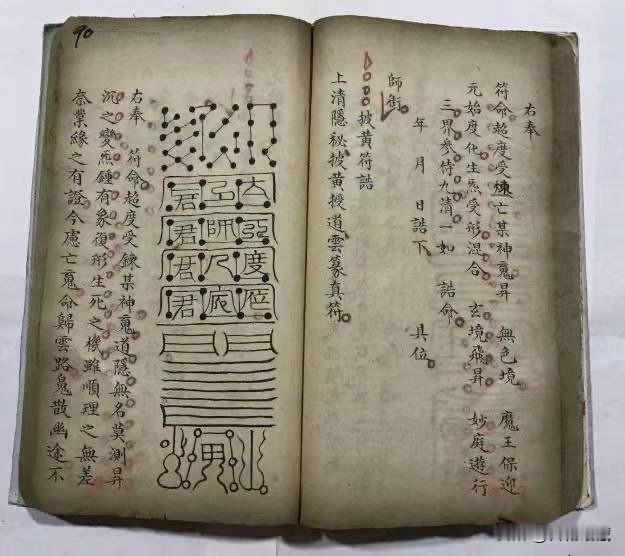 右奉
符命超度受煉亡某神䰟昇 無色境 魔王保迎
元始度化生炁受形混合 玄境飛昇 妙庭遊行
三界參侍九清一如 誥命
年 月 日誥下 具位
師銜
披黃符誥
上清隱秘披黃授道雲篆真符
右奉 符命超度受鍊某神䰟道隱無名莫測昇
沉之變炁鍾有象復形生死之機雖順理之無差
奈業緣之有證今慮亡䰟命歸雲路鬼散幽途不
90